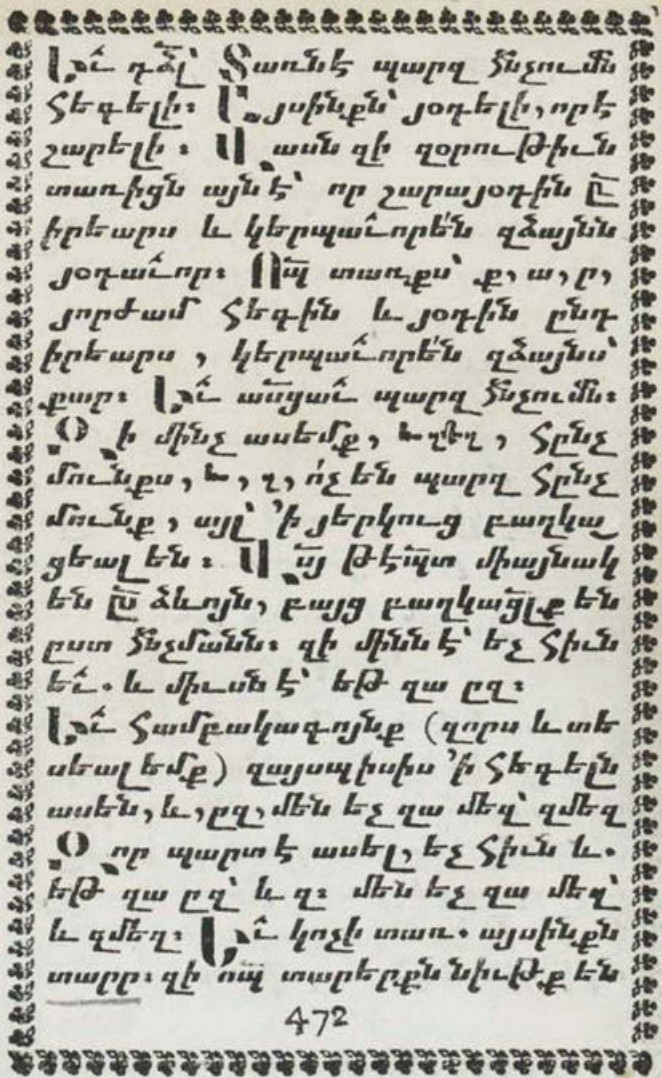 Եւ դձլ՝ Տառն է պարզ հնչումն
հեգելի։ Այսինքն՝ յօդելի, որ է
շարելի։ Վասն զի զօրութիւն
տառիցն այն է՝ որ շարայօդին ընդ
իրեարս և կերպաւորեն զձայնն
յօդաւոր։ Որպ տառքս՝ ք, ա, ր,
յորժամ հեգին և յօդին ընդ
իրեարս, կերպաւորեն զձայնս՝
քար։ Եւ ասցաւ պարզ հնչումն։
Զի մինչ ասեմք, և, զեզ, հընչ
մունքս, և, զ, ոչ են պարզ հընչ
մունք, այլ ՚ի յերկուց բաղկա
ցեալ են։ Վս թէպտ միայնակ
են ըստ ձևոյն, բայց բաղկացլք են
ըստ հնչմանն։ զի մինն է՝ եչ հիւն
եւ. և միւսն է՝ եթ զա ըզ։
Եւ համբակագոյնք (զորս և տե
սեալ եմք) զայսպիսիս ՚ի հեգելն
ասեն, և, ըզ, մեն եչ զա մեզ՝ զմեզ
Զոր պարտ է ասել, եչ հիւն և.
եթ զա ըզ՝ և զ։ մեն եչ զա մեզ՝
և զմեզ։ Եւ կոչի տառ. այսինքն
տարր։ զի որպ տարերքն նիւթք են
472